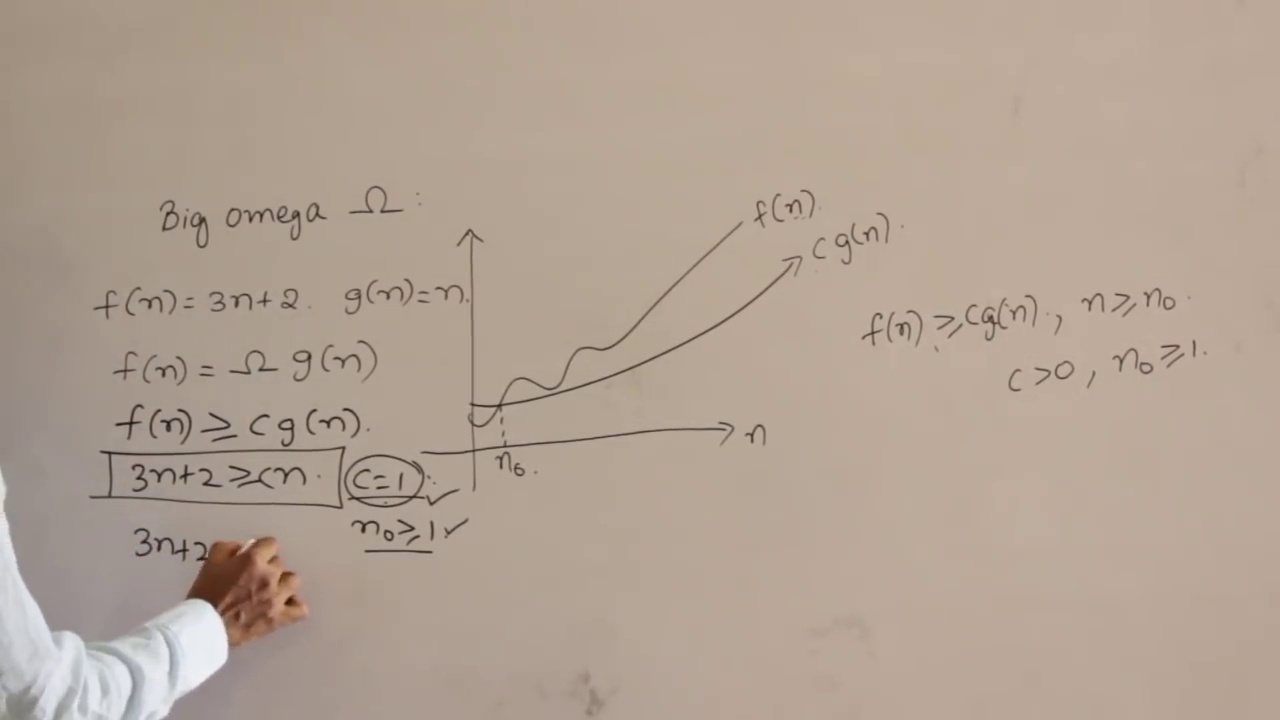 Big omega Ω :
f(n) = 3n+2. g(n) = n.
f(n) = Ω g(n)
f(n) ≥ c g(n).
3n+2 ≥ cn. c=1
n₀ ≥ 1 ✓
3n+2
f(n).
c g(n).
n
n₀.
f(n) ≥ cg(n)., n ≥ n₀.
c > 0, n₀ ≥ 1.